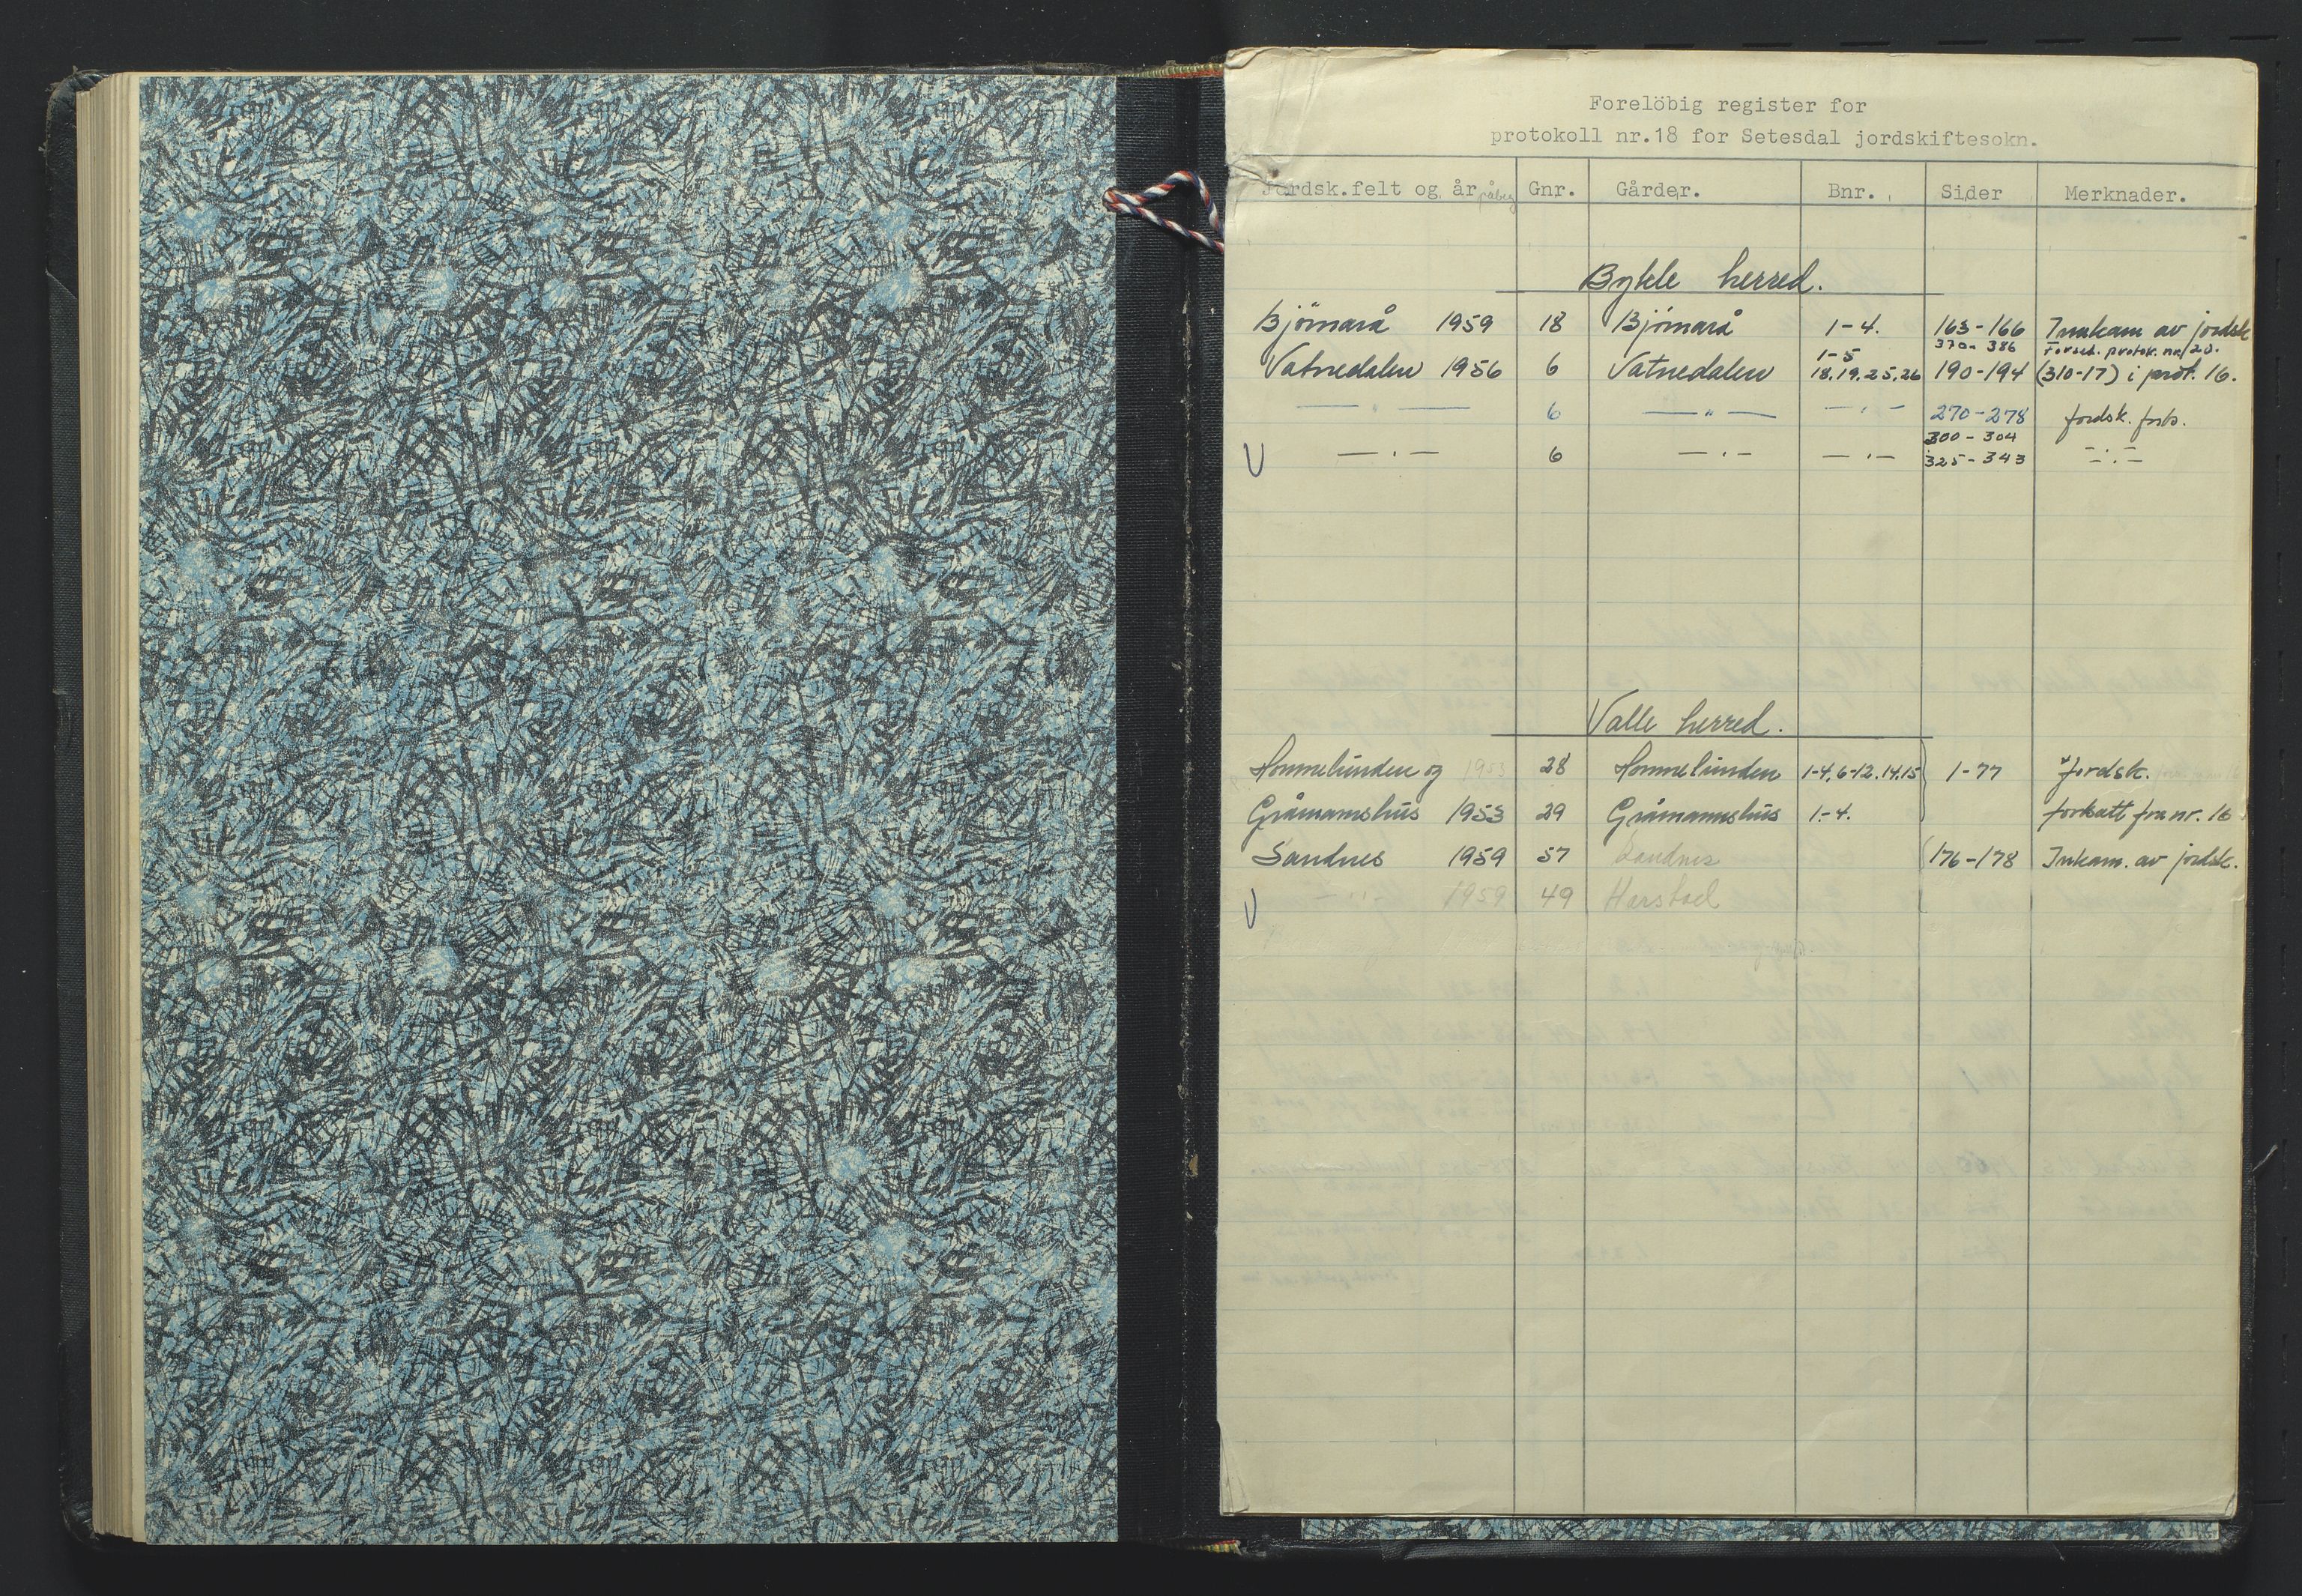 Forelöbig register for
protokoll nr.18 for Setesdal jordskiftesokn.
Jordsk.felt og år påbeg Gnr. Gårder. Bnr. Sider Merknader.
Bykle herred.
Björnarå 1959 18 Björnarå 1-4. 163-166 Innkam av jordsk
370-386 Forts. protok. nr. 20.
Vatnedalen 1956 6 Vatnedalen 1-5 18,19,25,26 190-194 (310-17) i prot. 16.
— " — 6 — " — — " — 270-278 jordsk. forts.
300-304
V — " — 6 — " — — " — 325-343 — " —
Valle herred.
Hommelunden og 1953 28 Hommelunden 1-4,6-12,14,15 1-77 Jordsk.
Gråmannshus 1953 29 Gråmannshus 1-4. fortsatt fra nr. 16
Sandnes 1959 57 Sandnes 176-178 Inkam. av jordsk.
V — " — 1959 49 Harstad